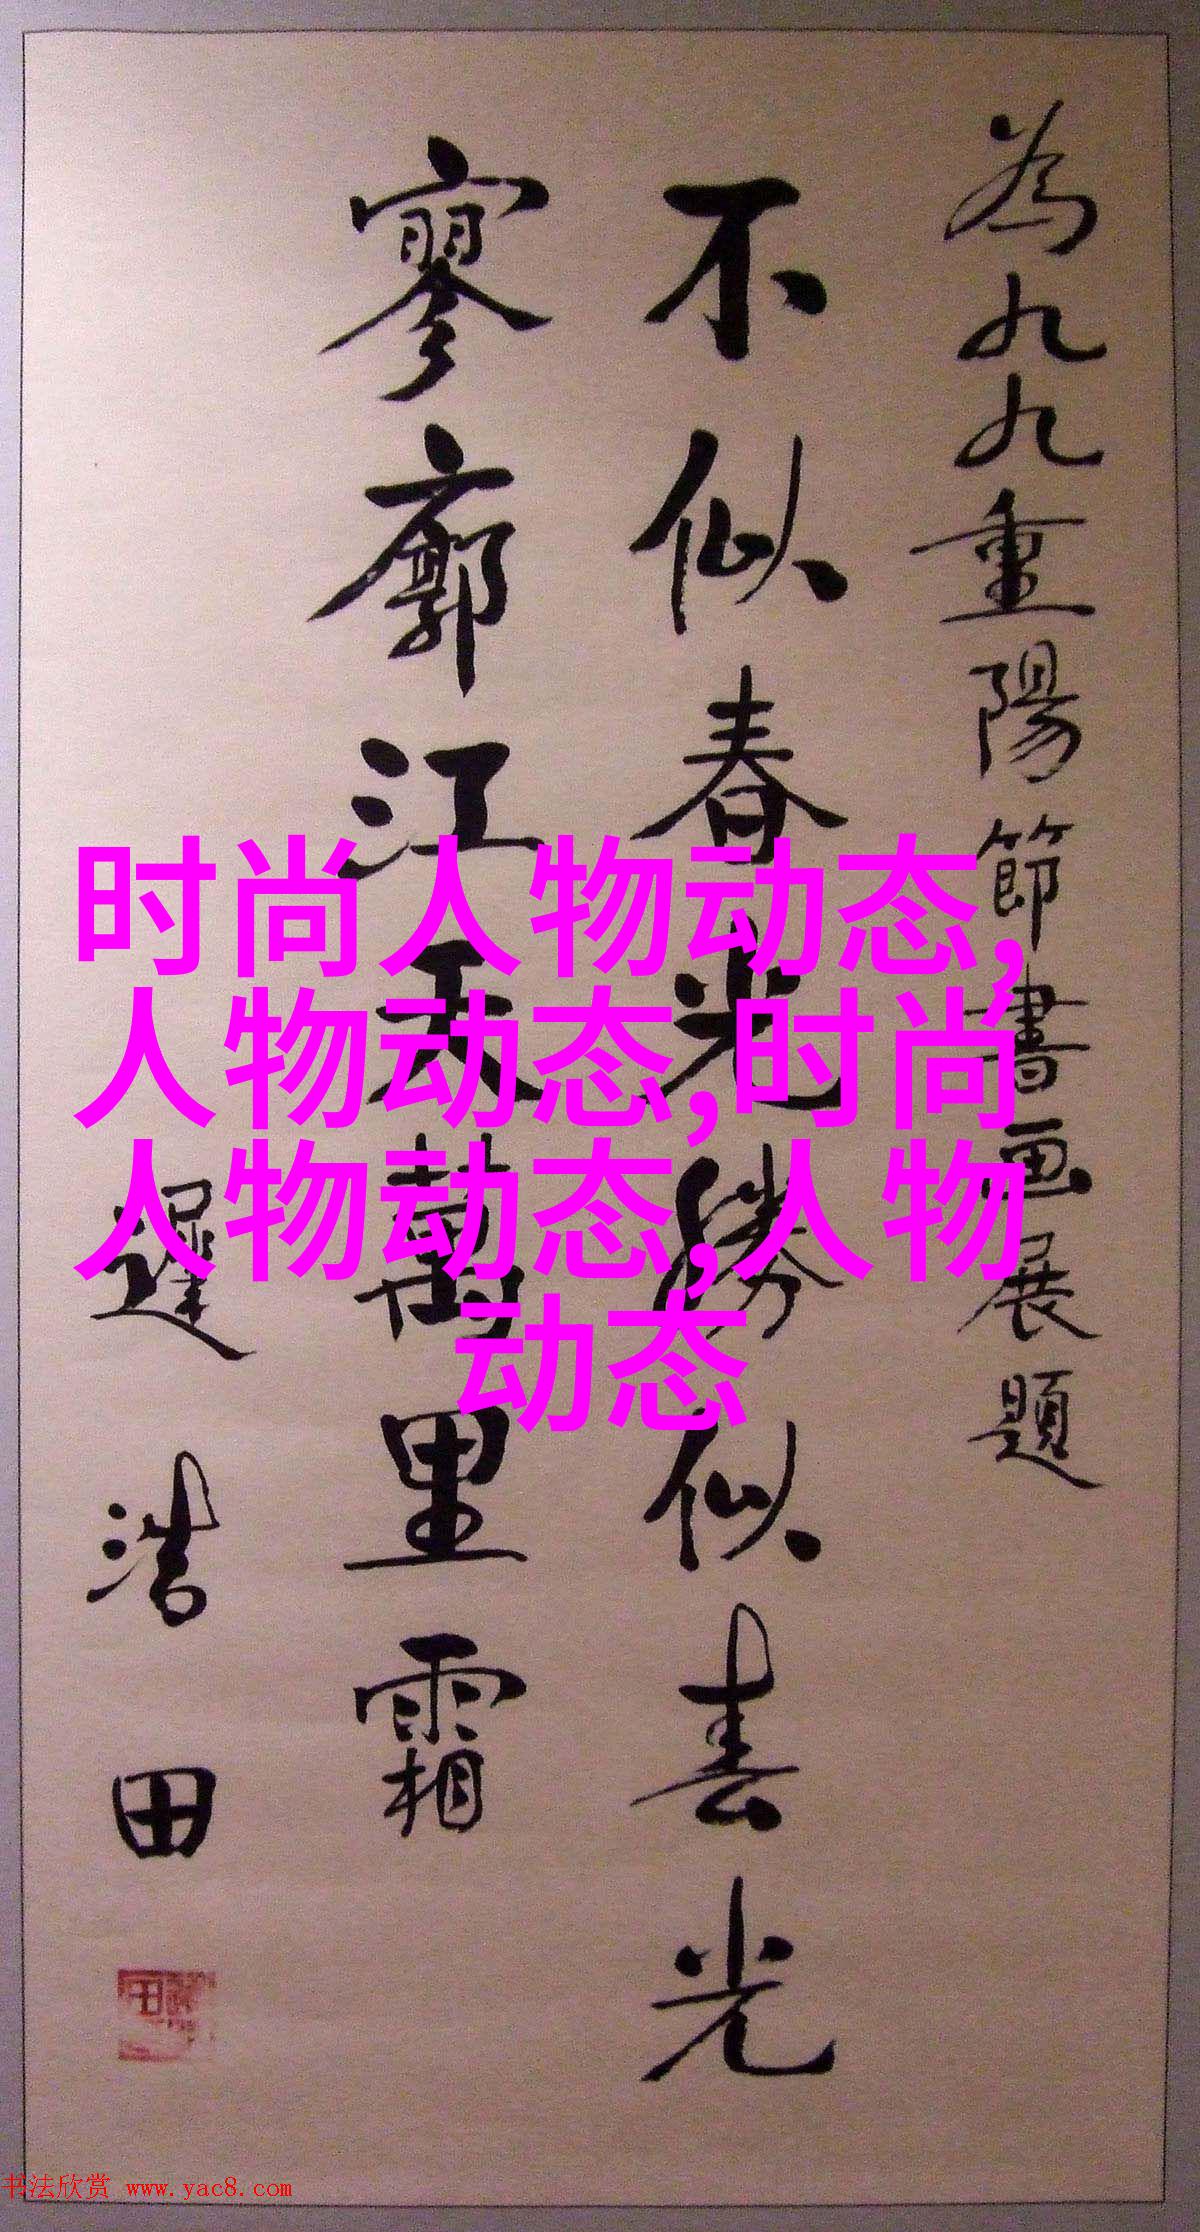 為九九重陽節書画展題
不似春光勝似春光
寥廓江天萬里霜
遲浩田
时尚人物动态,
人物动态,时尚
人物动态,人物
动态
书法欣赏 www.yac8.com